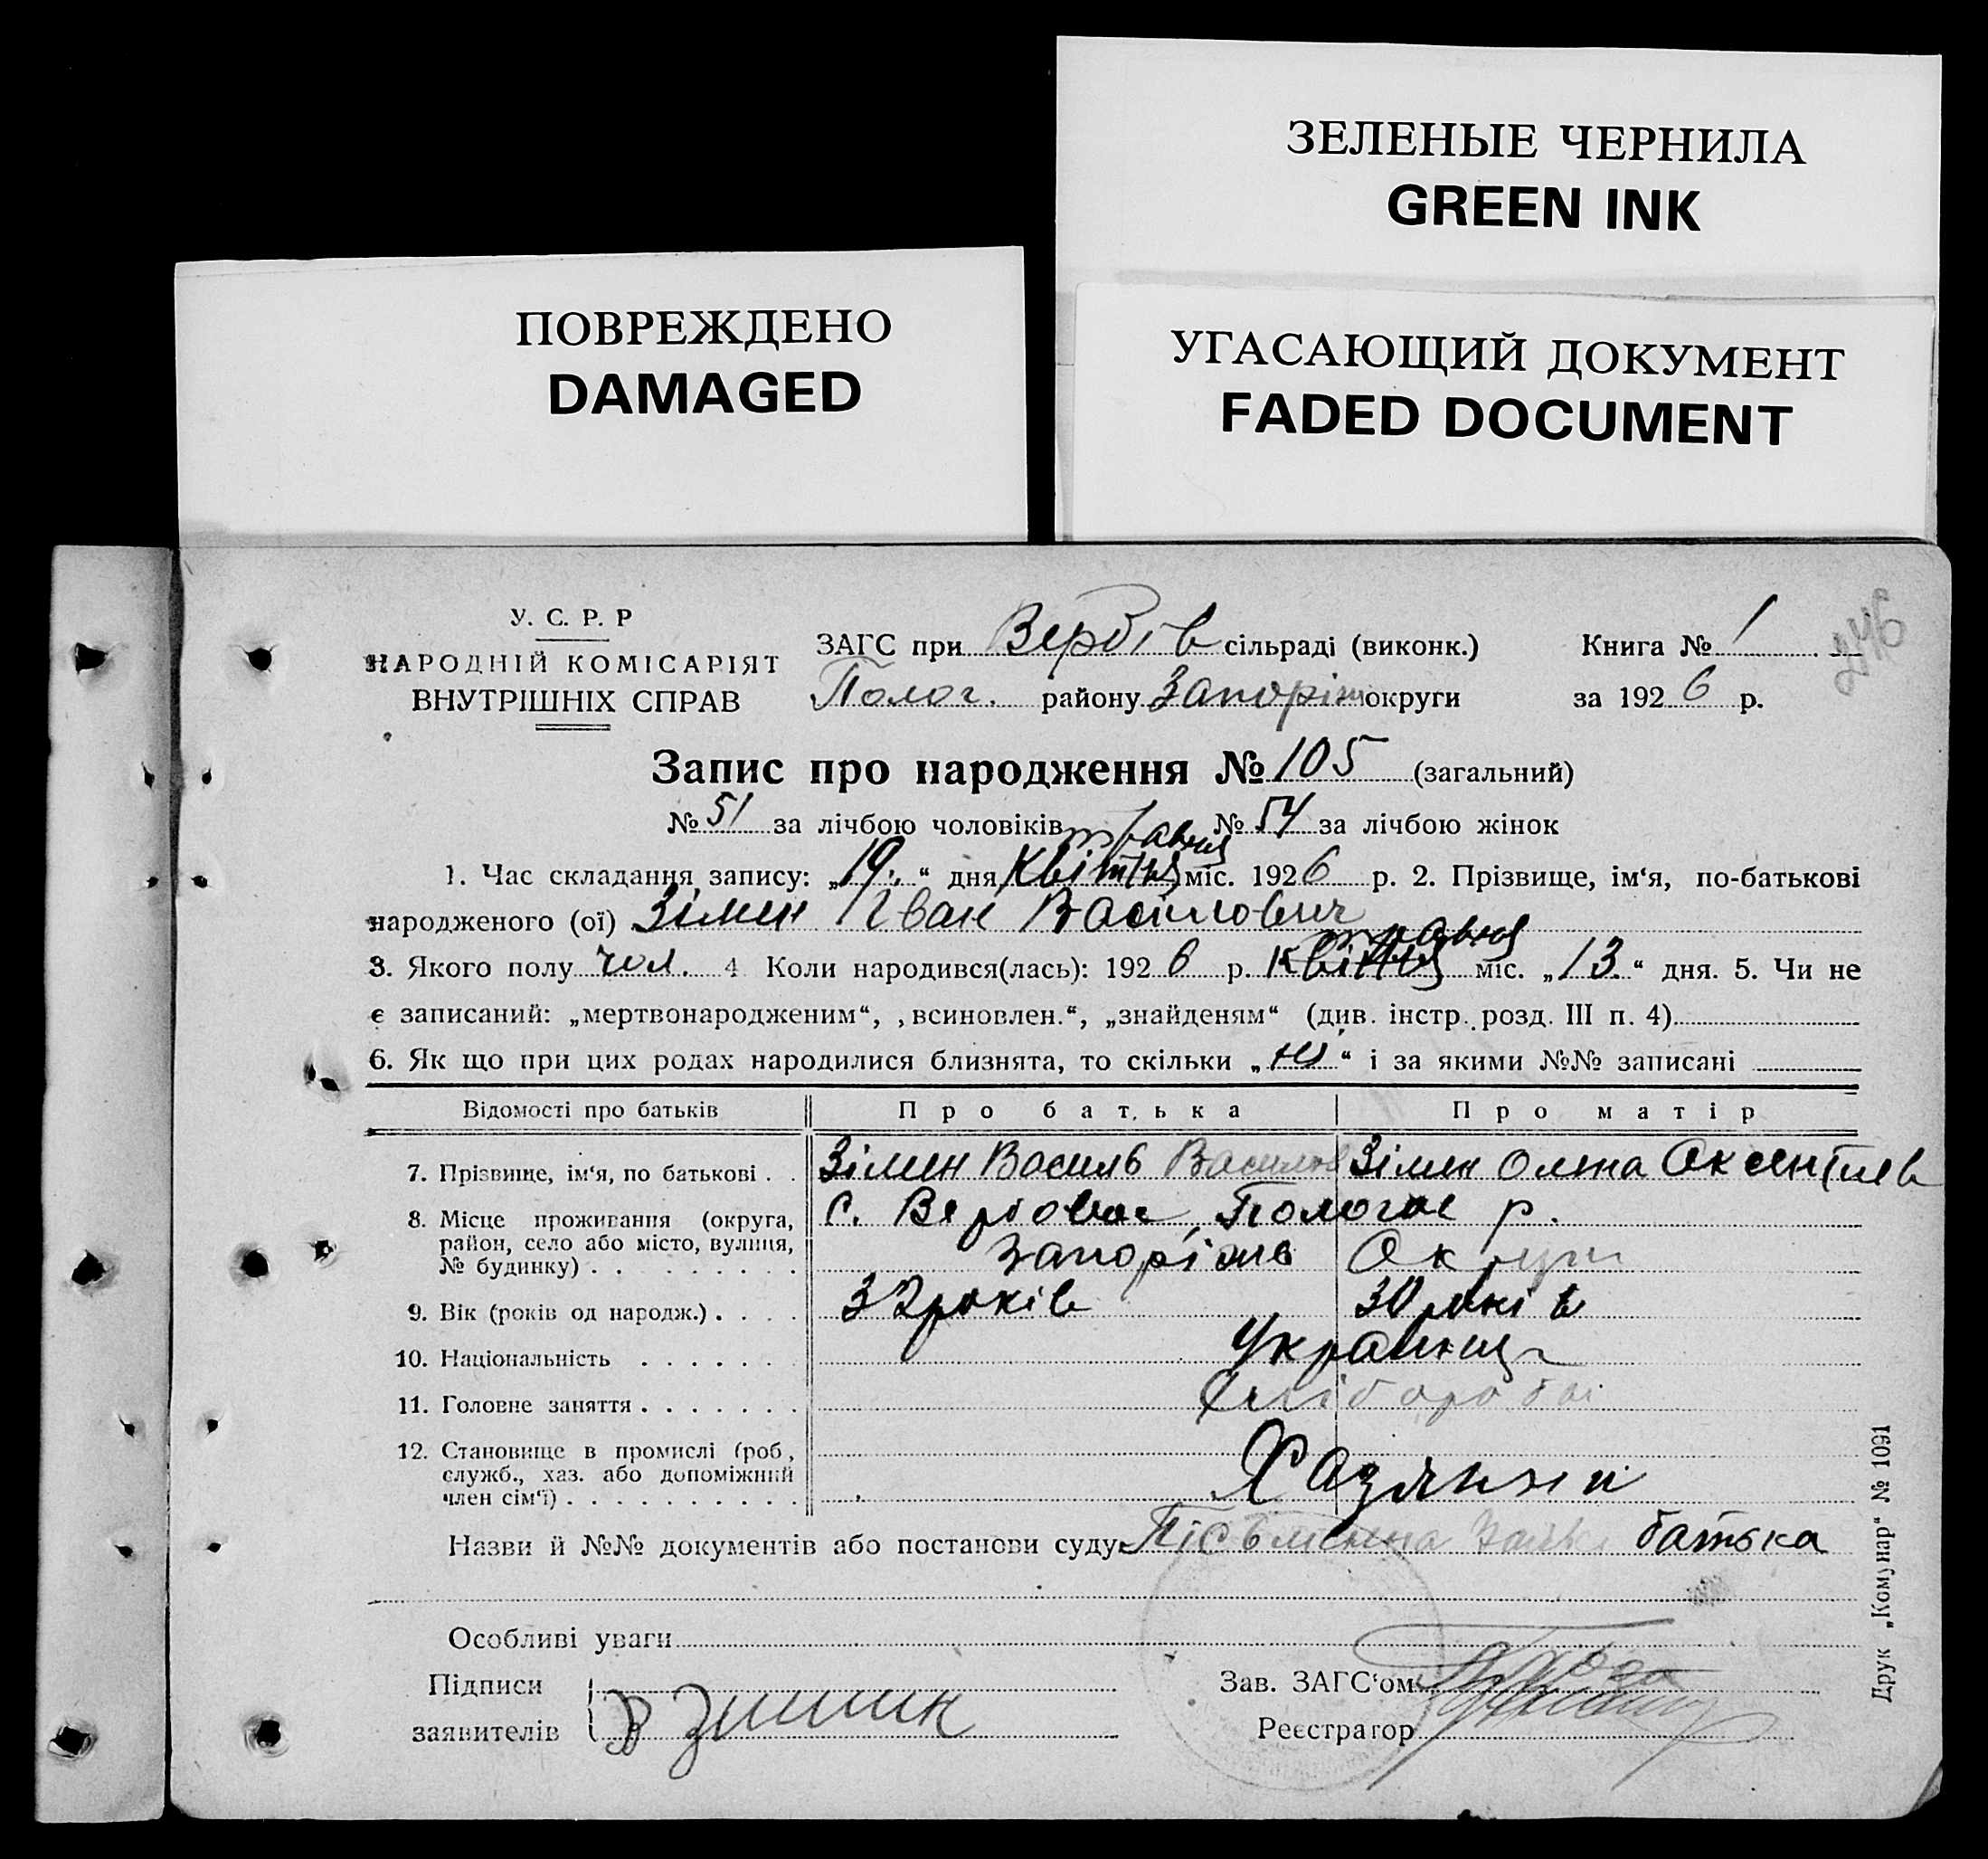 ЗЕЛЕНЫЕ ЧЕРНИЛА
GREEN INK
ПОВРЕЖДЕНО
DAMAGED
УГАСАЮЩИЙ ДОКУМЕНТ
FADED DOCUMENT
246
У. С. Р. Р
НАРОДНІЙ КОМІСАРІЯТ
ВНУТРІШНІХ СПРАВ
ЗАГС при Вербів сільраді (виконк.)
Полог. району Запоріж округи
Книга № 1
за 1926 р.
Запис про народження № 105 (загальний)
№ 51 за лічбою чоловіків № 54 за лічбою жінок
травня
1. Час складання запису: „19." дня Квітня міс. 1926 р. 2. Прізвище, ім'я, по-батькові
народженого (ої) Зімин Іван Васільович
травня
3. Якого полу чол. 4 Коли народився(лась): 1926 р. Квітня міс. „13." дня. 5. Чи не
є записаний: „мертвонародженим", „всиновлен.", „знайденям" (див. інстр. розд. III п. 4)
6. Як що при цих родах народилися близнята, то скільки „ні" і за якими №№ записані
Відомості про батьків Про батька Про матір
7. Прізвище, ім'я, по батькові . . Зімин Василь Васильов Зімин Олена Оксентієв
8. Місце проживання (округа, район, село або місто, вулиця, № будинку) . . с. Вербове, Пологов р.
Запоріжв Округи
9. Вік (років од народж.) . . . . 32 років 30 років
10. Національність . . . . . . . Українці
11. Головне заняття . . . . . . . Хлібороби
12. Становище в промислі (роб., служб., хаз. або допоміжний член сім'ї) . . . Хазяїни
Назви й №№ документів або постанови суду Пісьменна заява батька
Особливі уваги
Підписи
заявителів
В Зимин
Зав. ЗАГС'ом
Реєстратор
Друк „Комунар" № 1091